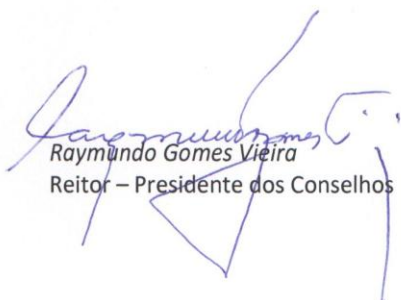 Raymundo Gomes Vieira
Reitor – Presidente dos Conselhos